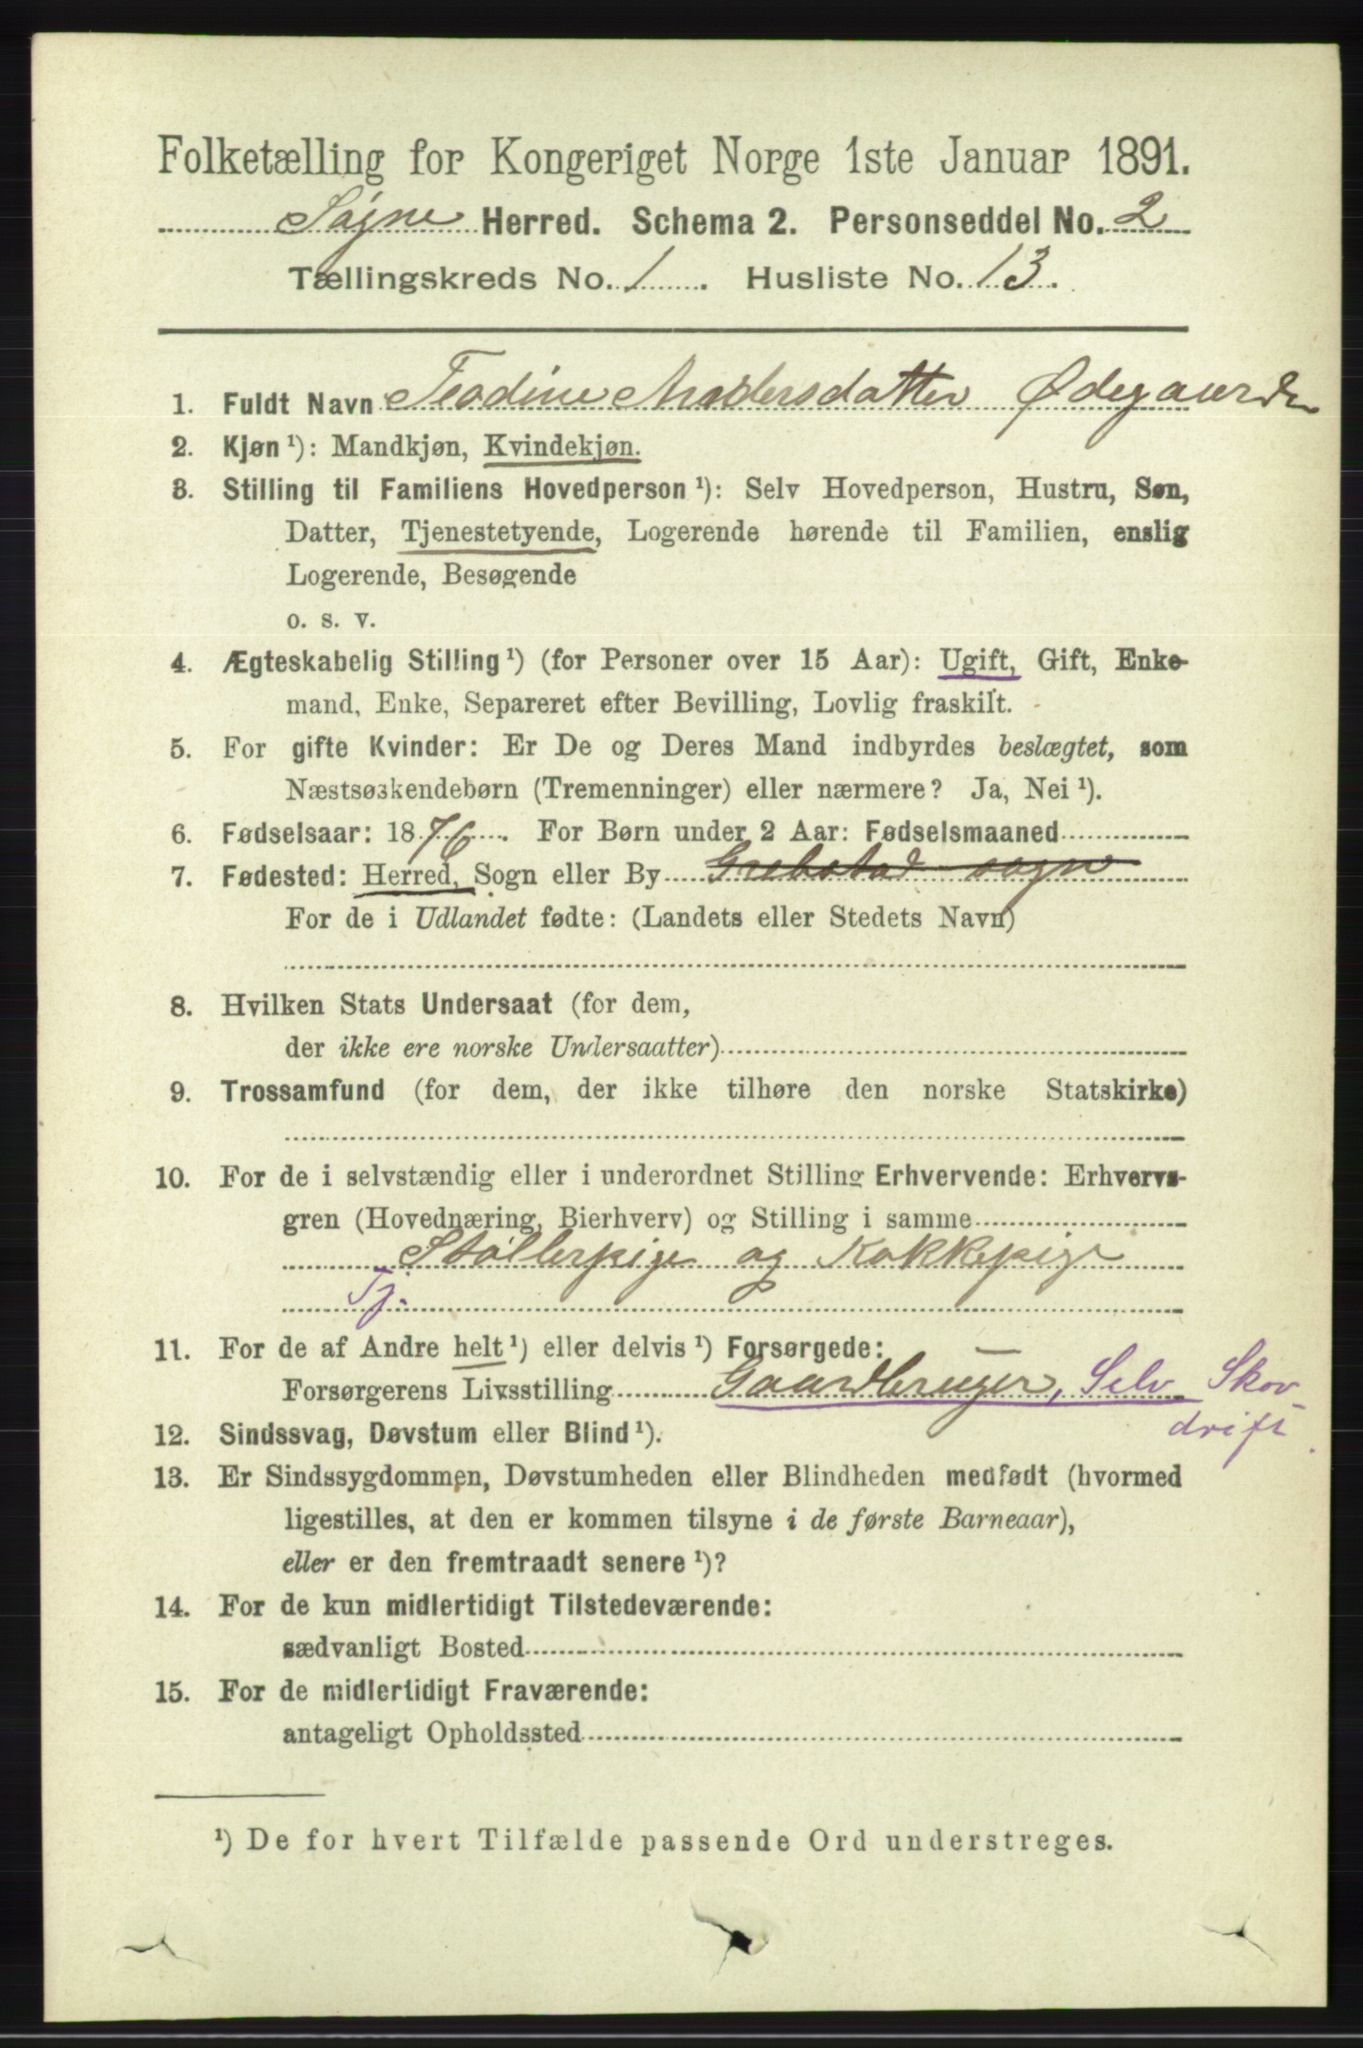 Folketælling for Kongeriget Norge 1ste Januar 1891.
Søgne Herred. Schema 2. Personseddel No. 2
Tællingskreds No. 1. Husliste No. 13.
1. Fuldt Navn Teodine Andersdatter Ødegaarden
2. Kjøn ¹): Mandkjøn, Kvindekjøn.
3. Stilling til Familiens Hovedperson ¹): Selv Hovedperson, Hustru, Søn,
Datter, Tjenestetyende, Logerende hørende til Familien, enslig
Logerende, Besøgende
o. s. v.
4. Ægteskabelig Stilling ¹) (for Personer over 15 Aar): Ugift, Gift, Enke-
mand, Enke, Separeret efter Bevilling, Lovlig fraskilt.
5. For gifte Kvinder: Er De og Deres Mand indbyrdes beslægtet, som
Næstsøskendebørn (Tremenninger) eller nærmere? Ja, Nei ¹).
6. Fødselsaar: 1876. For Børn under 2 Aar: Fødselsmaaned
7. Fødested: Herred, Sogn eller By Grebstad sogn
For de i Udlandet fødte: (Landets eller Stedets Navn)
8. Hvilken Stats Undersaat (for dem,
der ikke ere norske Undersaatter)
9. Trossamfund (for dem, der ikke tilhøre den norske Statskirke)
10. For de i selvstændig eller i underordnet Stilling Erhvervende: Erhvervs-
gren (Hovednæring, Bierhverv) og Stilling i samme
Støllerpige og Kokkepige
Tj.
11. For de af Andre helt ¹) eller delvis ¹) Forsørgede:
Forsørgerens Livsstilling Gaardbruger, Selv Skov
drift.
12. Sindssvag, Døvstum eller Blind ¹).
13. Er Sindssygdommen, Døvstumheden eller Blindheden medfødt (hvormed
ligestilles, at den er kommen tilsyne i de første Barneaar),
eller er den fremtraadt senere ¹)?
14. For de kun midlertidigt Tilstedeværende:
sædvanligt Bosted
15. For de midlertidigt Fraværende:
antageligt Opholdssted
¹) De for hvert Tilfælde passende Ord understreges.